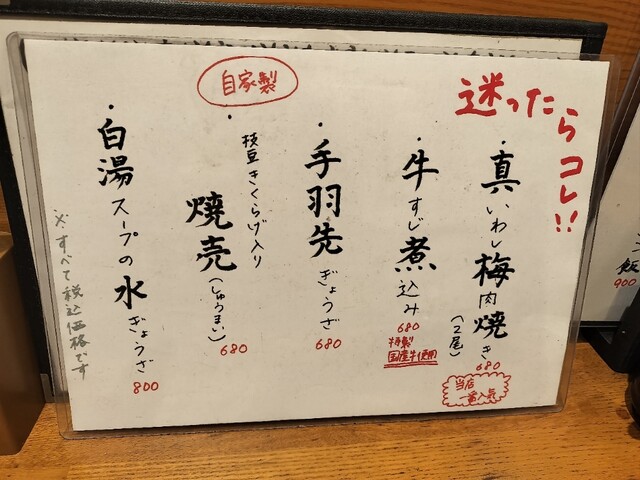 迷ったらコレ!!
・真いわし梅肉焼き(2尾)
680
当店
一番人気
・牛すじ煮込み
680
特製
国産牛使用
・手羽先ぎょうざ
680
自家製
・枝豆きくらげ入り
焼売(しゅうまい)
680
・白湯スープの水ぎょうざ
800
※すべて税込価格です
飯
900